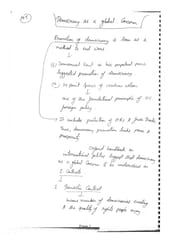 Democracy as a global Concern
Promotion of democracy is seen as a
method to end wars
Immanuel Kant in his perpetual peace
suggested promotion of democracy
14 point speech of woodrow wilson
one of the foundational principles of US
foreign policy
It includes protection of HRs & free trade
Thus, democracy promotion leads peace &
prosperity
Oxford handbook on
international politics suggest that democracy
as a global Concern to be understood in
2 Contexts
① Domestic Context
means number of democracies existing
& the quality of rights people enjoy